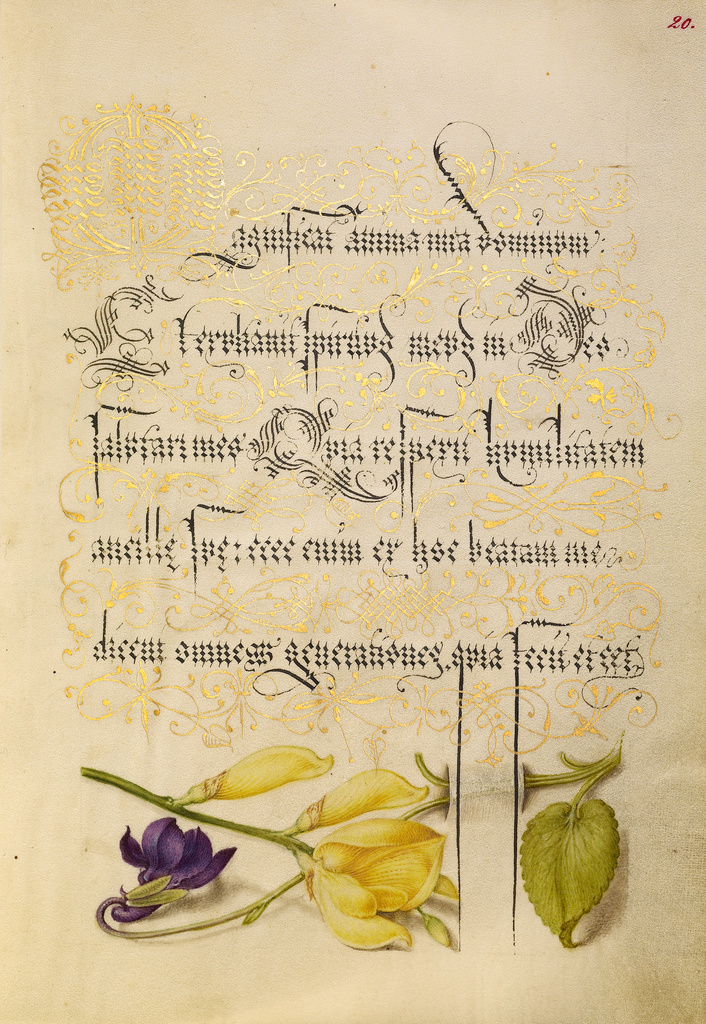 20.
Magnificat anima mea dominum:
Et exultauit spiritus meus in Deo
salutari meo Quia respexit humilitatem
ancillę suę: ecce enim ex hoc beatam me
dicent omnes generationes, quia fecit et cet: